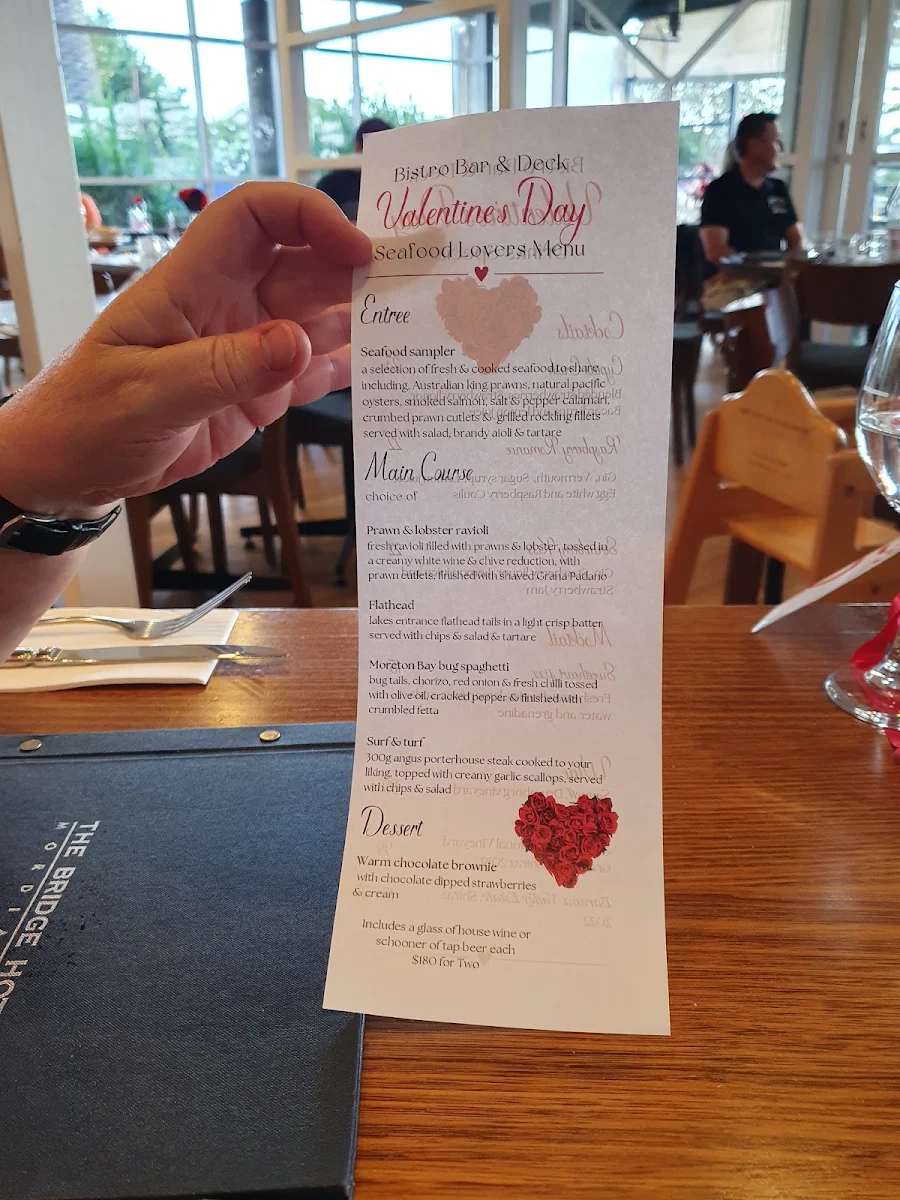 Bistro Bar & Deck
Valentine's Day
Seafood Lovers Menu
Entree
Seafood sampler
a selection of fresh & cooked seafood to share
including, Australian king prawns, natural pacific
oysters, smoked salmon, salt & pepper calamari,
crumbed prawn cutlets & grilled rockling fillets
served with salad, brandy aioli & tartare
Main Course
choice of
Prawn & lobster ravioli
fresh ravioli filled with prawns & lobster, tossed in
a creamy white wine & chive reduction, with
prawn cutlets, finished with shaved Grana Padano
Flathead
lakes entrance flathead tails in a light crisp batter
served with chips & salad & tartare
Moreton Bay bug spaghetti
bug tails, chorizo, red onion & fresh chilli tossed
with olive oil, cracked pepper & finished with
crumbled fetta
Surf & turf
300g angus porterhouse steak cooked to your
liking, topped with creamy garlic scallops, served
with chips & salad
Dessert
Warm chocolate brownie
with chocolate dipped strawberries
& cream
Includes a glass of house wine or
schooner of tap beer each
$180 for Two
THE BRIDGE HOT
MORDIA